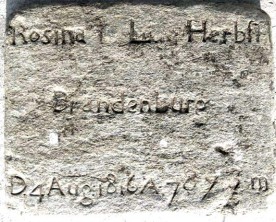 Rosina Herbst
Brandenburg
D 4 Aug 1816 A 76 7 m